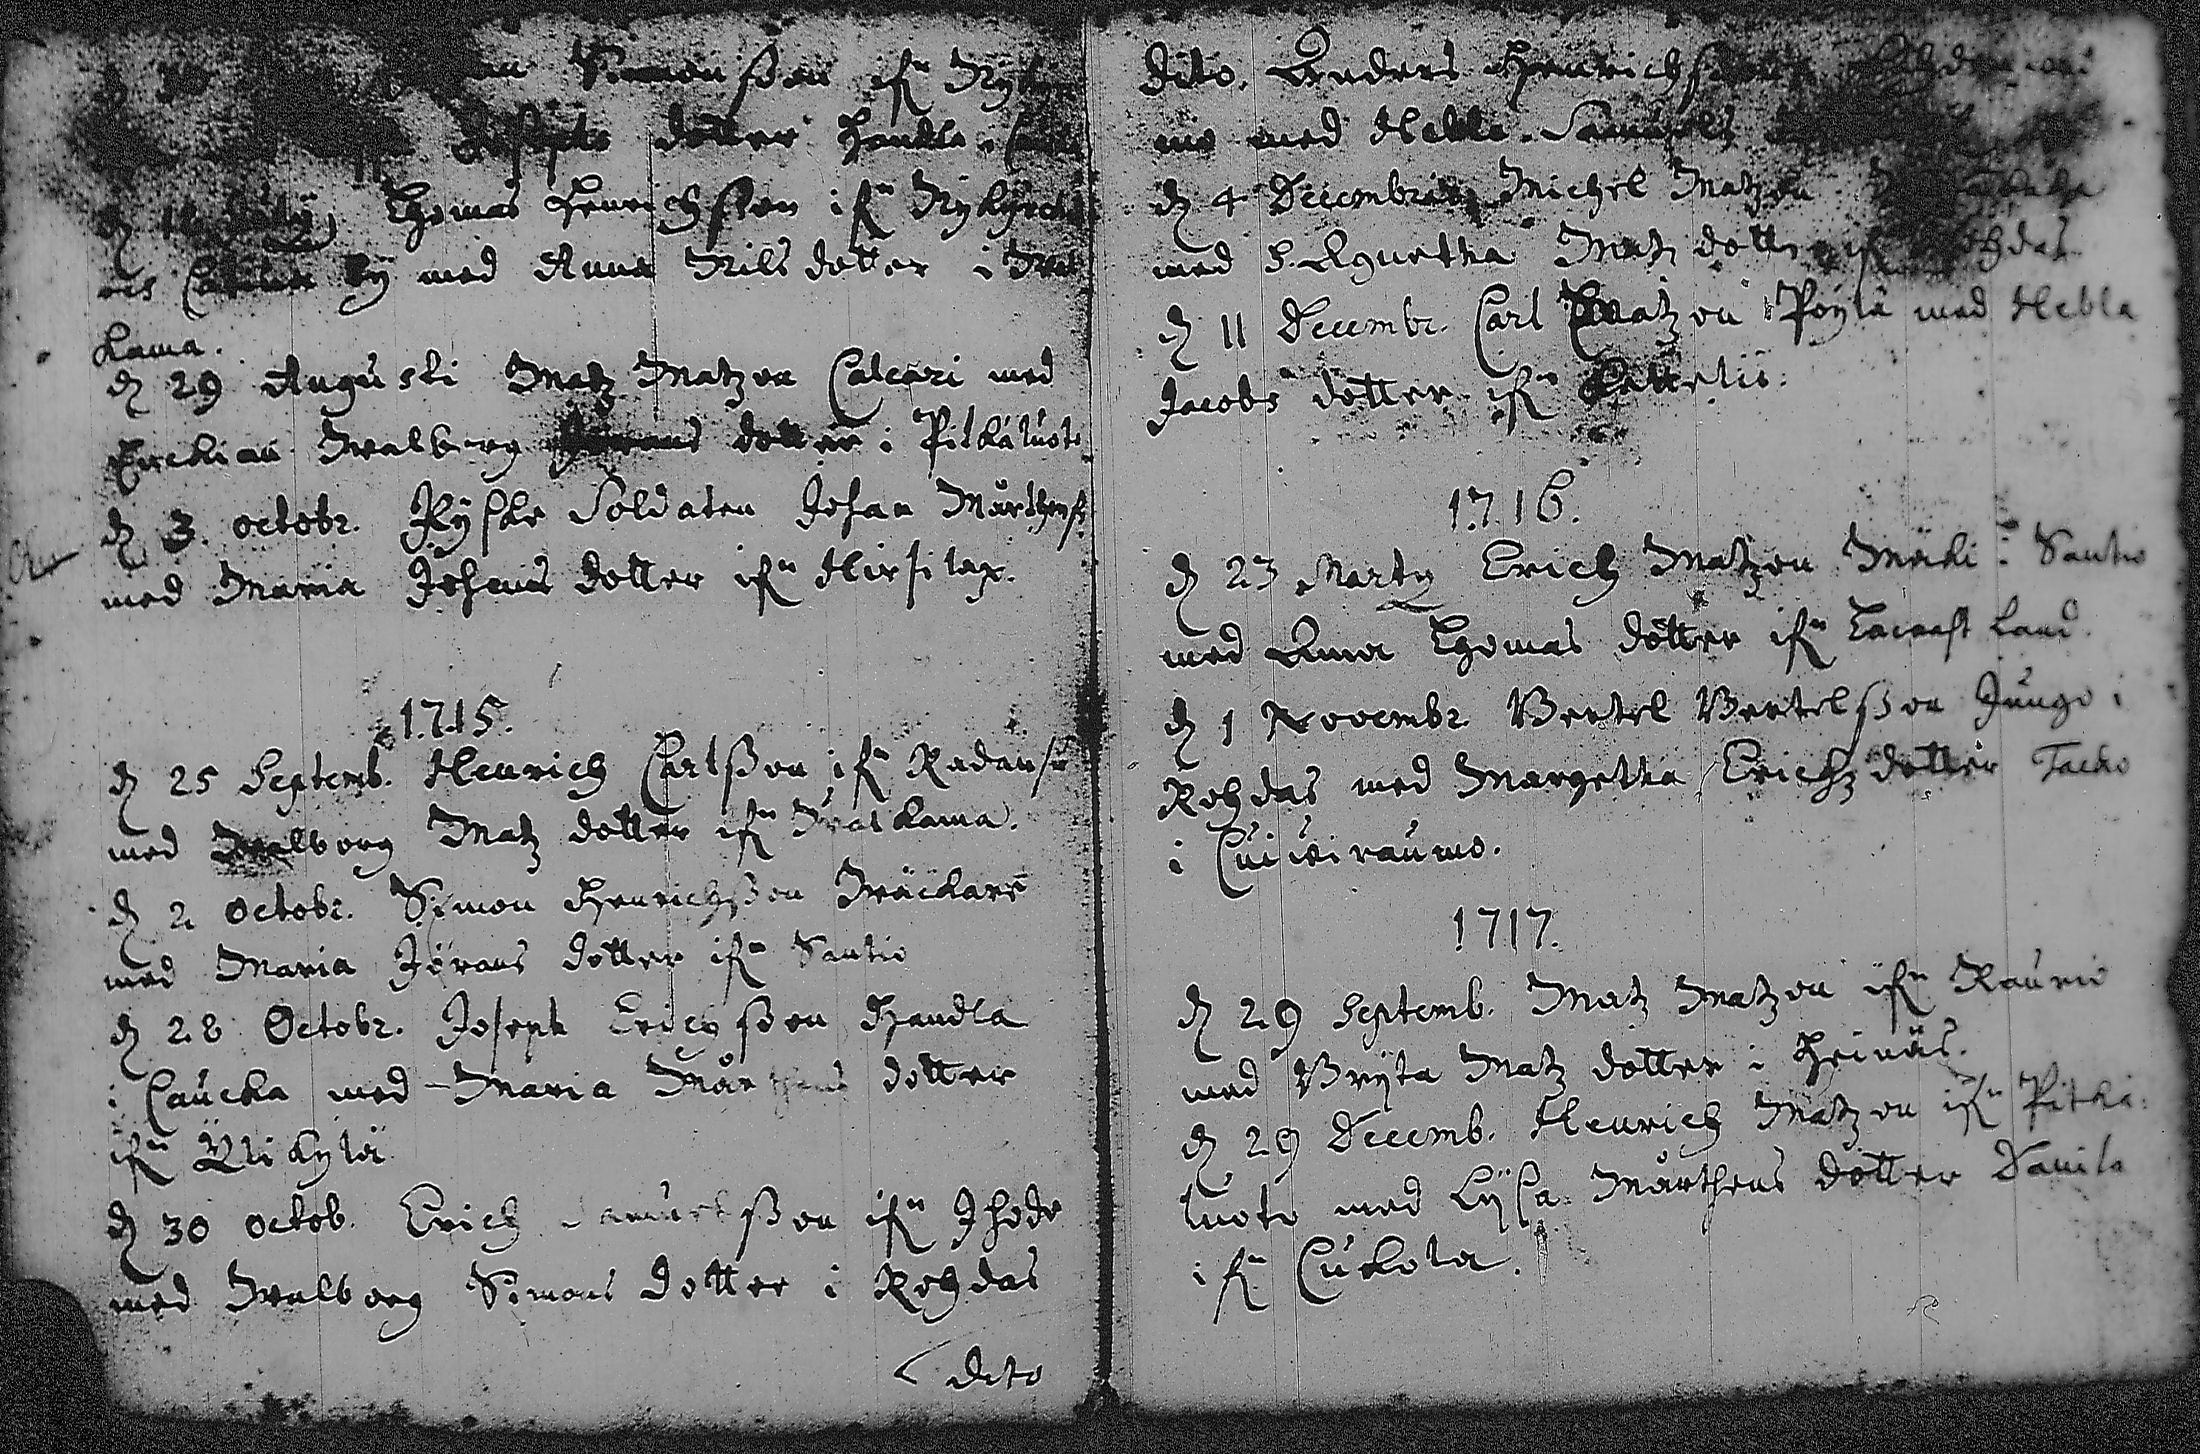 Simonsson ifrn Nyky
Josephs dotter Handla
d 16 July Thomas Henrichsson ifrn Nykyrck
by med Anna Nils dotter i Wat
kama.
d 29 Augusti Matz Matzon Calcari med
Enckian Walborg dotter i Pitkäluoto
d 3. octobr. Ryske Soldaten Johan Mårthens
med Maria Johans dotter ifrn Hirsilax.
1715.
d 25 Septemb. Henrich Carlsson ifrn Radansu
med Walborg Matz dotter ifrn Watkama.
d 2 Octobr. Simon Henrichsson Wäckare
med Maria Jörans dotter ifrn Santio
d 28 Octobr. Joseph Erichsson Handla
i Caucka med Maria Mårthens dotter
ifrn Ylikylä
d 30 octob. Erich sson ifrn Ihode
med Walborg Simons dotter i Rohdas
dito
dito. Anders Henrichsson
med Hebla Samuels
d 4 Decembris Michel Matzon
med H. Agnetha Matz dotter ifrn Rohdas
d 11 Decembr. Carl Matzon Pöylä med Hebla
Jacobs dotter ifrn
1716.
d 23 Marty Erich Matzon Mäki i Santio
med Anna Thomas dotter ifrn land.
d 1 Novembr Bertel Bertelsson Jungo i
Rohdas med Margetha Erichz dotter Tacko
i Cuiwiraumo.
1717.
d 29 Septemb. Matz Matzon ifrn Raurio
med Bryta Matz dotter i Heinäs.
d 29 Decemb. Henrich Matzon ifrn Pitkä:
luoto med Lysa Mårthens dotter Danila
ifrn Cukola.